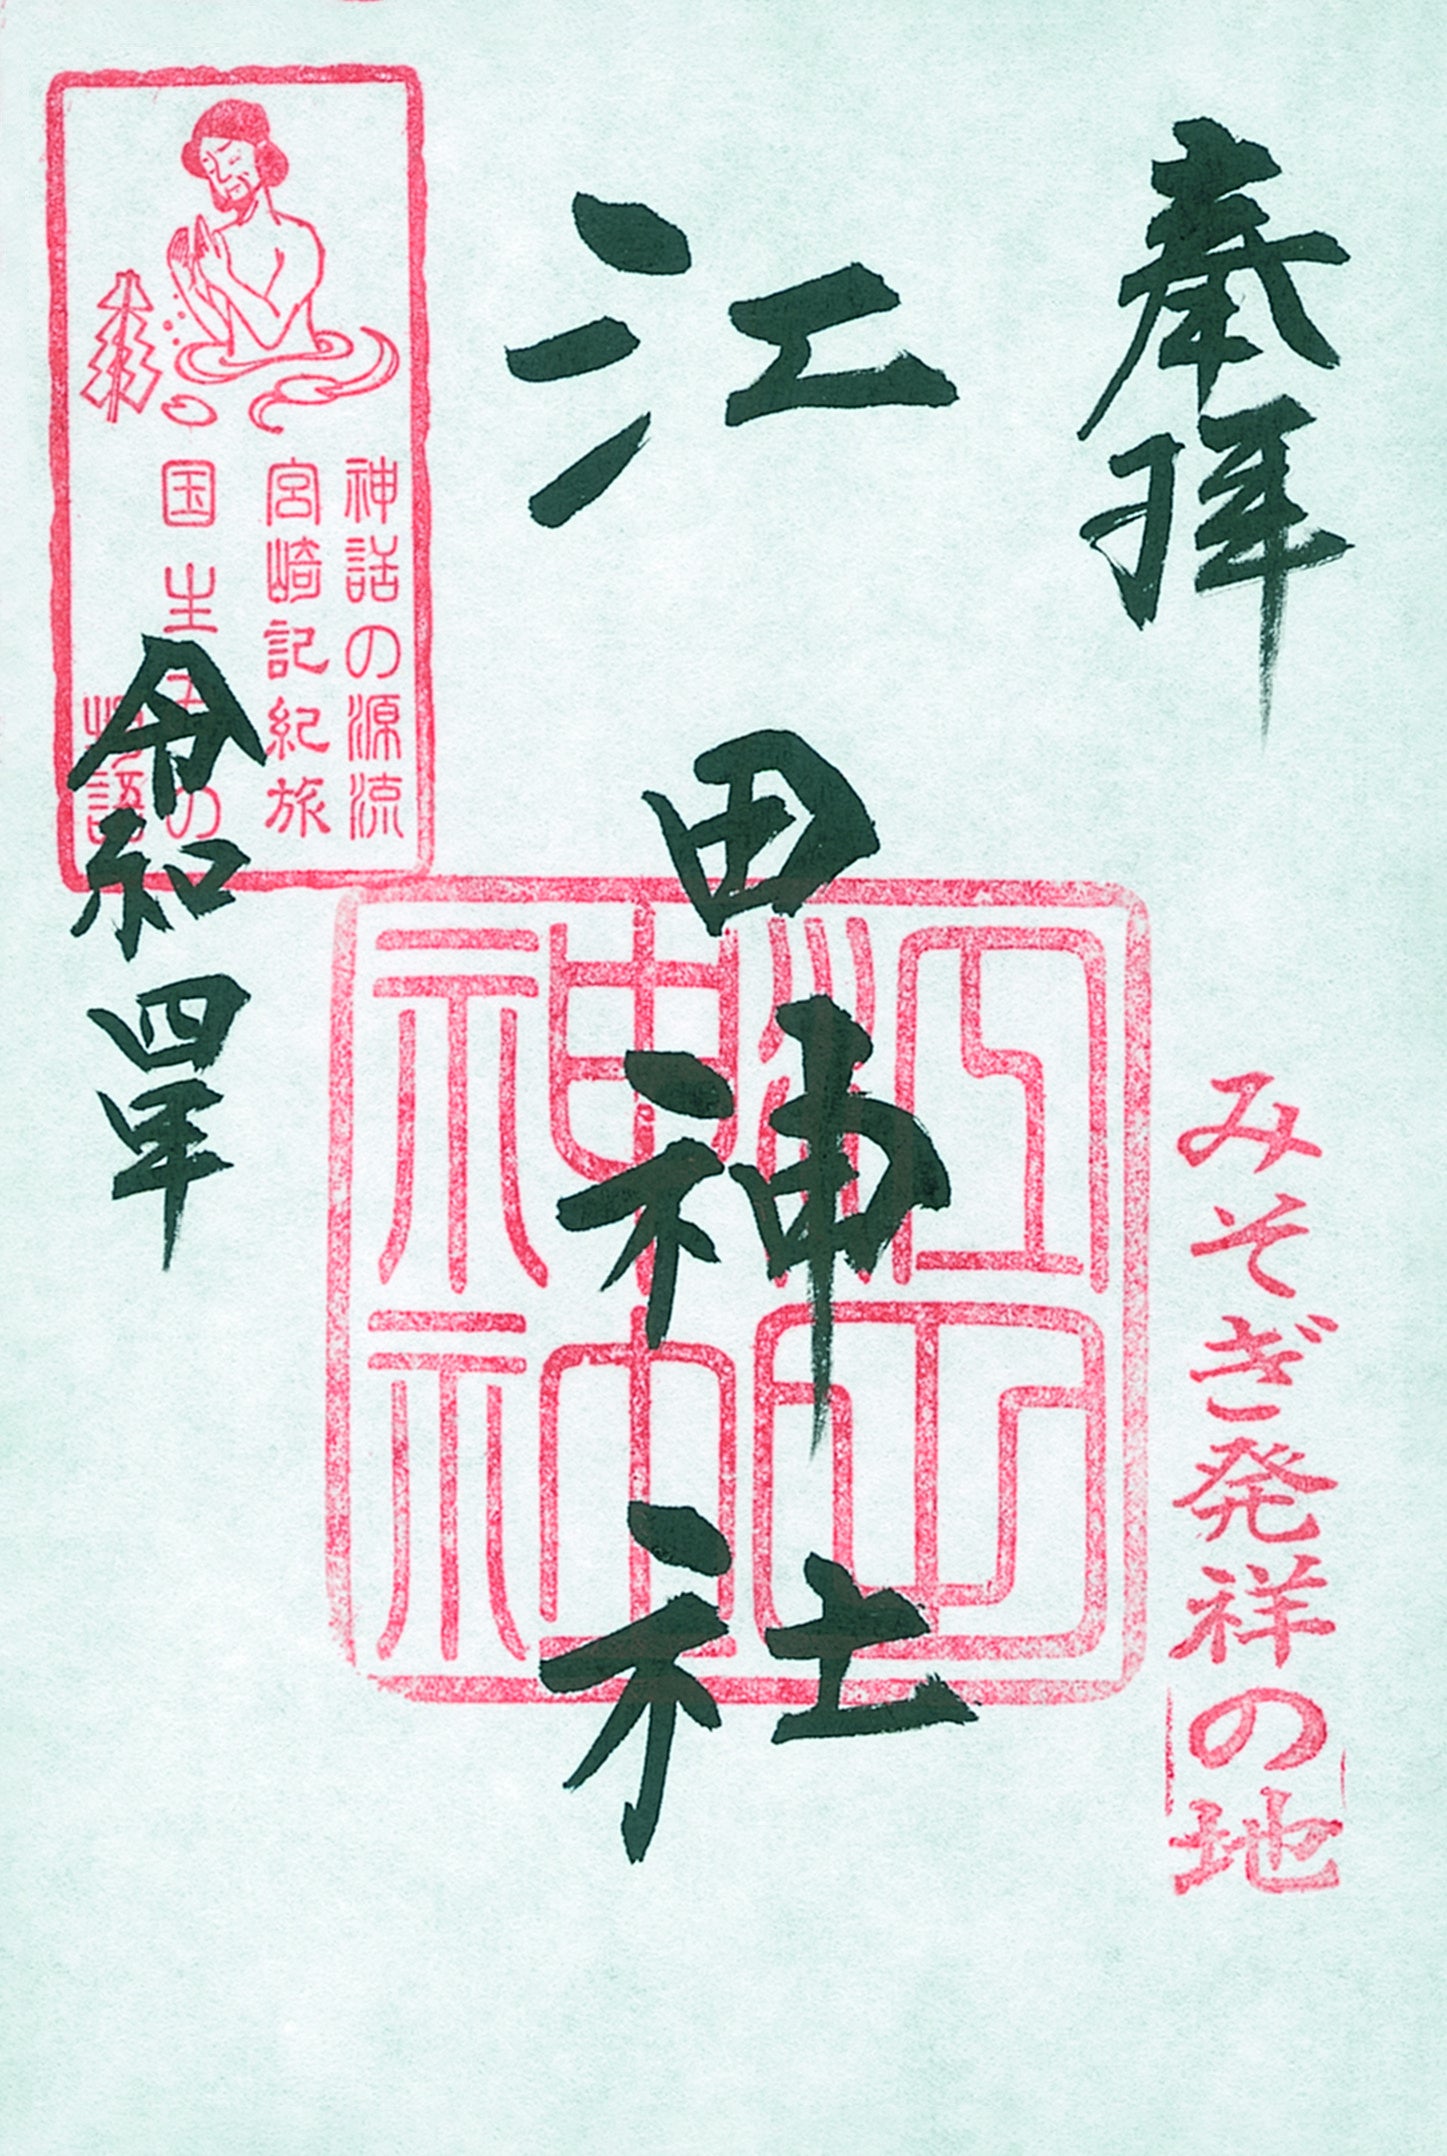 奉拝
みそぎ発祥の地
江田神社
江田
神社
神話の源流
宮崎記紀旅
国生の
物語
令和四年